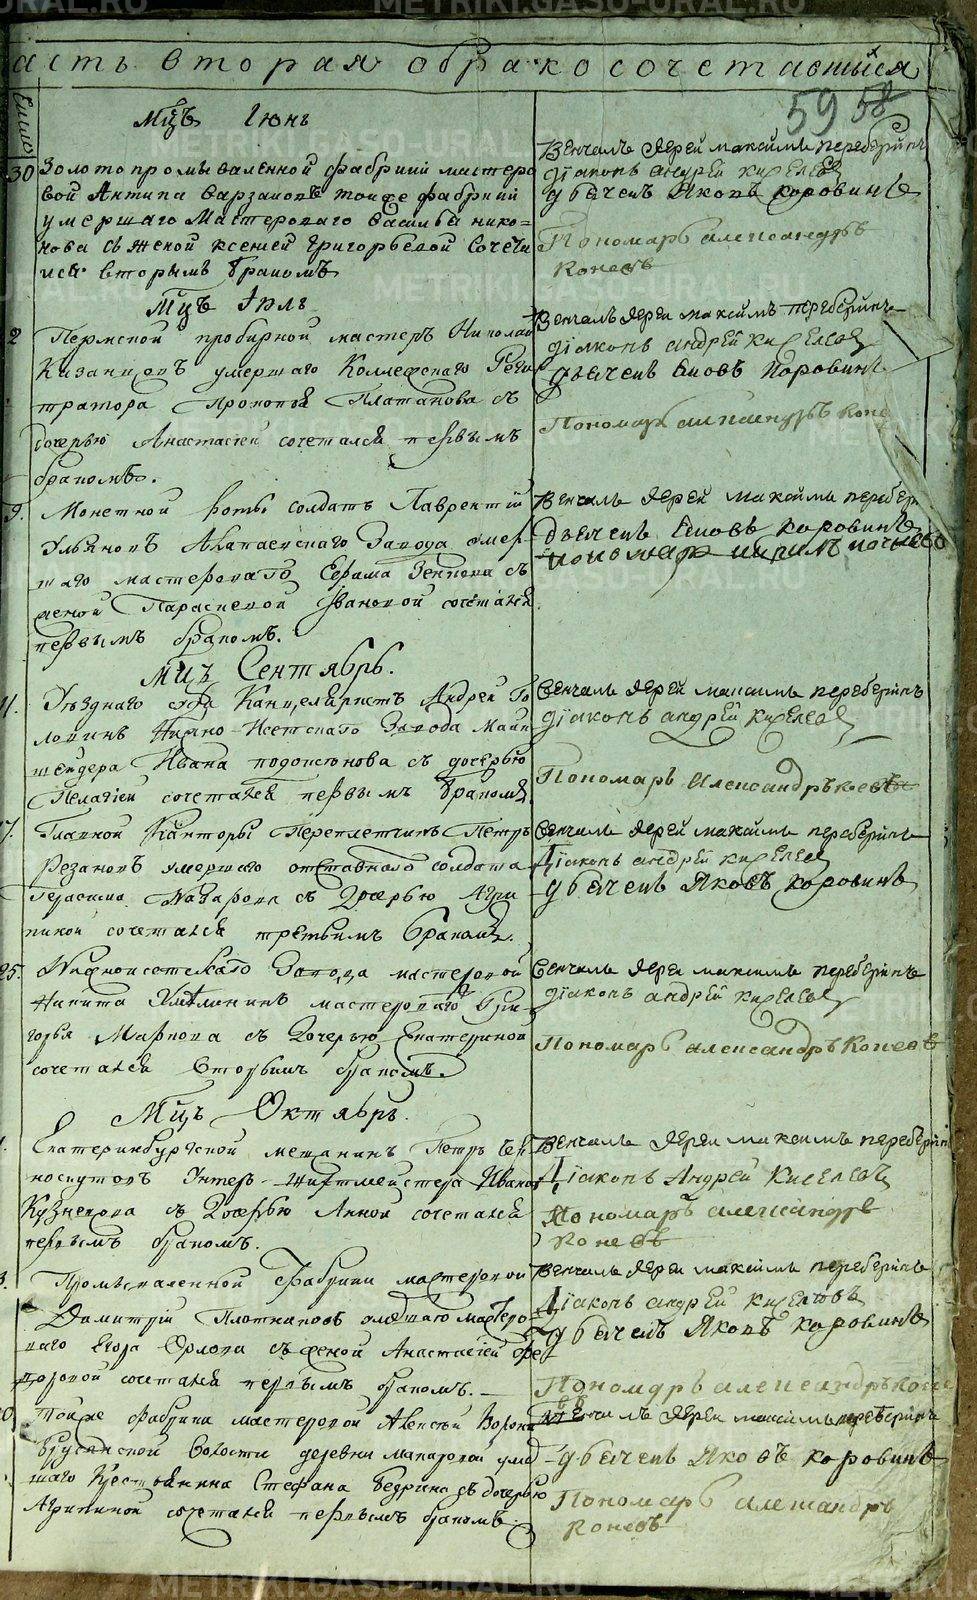 асть вторая обракосочетавшихся
59 58
Число
Мцъ Іюнь
30 Золотопромываленной фабрики мастеро
вой Антипа Варзаковъ тойже фабрики
умершаго Мастероваго василья нико-
нова съ женой ксенией Григорьевой Сочета
лся вторымъ бракомъ
Венчалъ Иерей максимъ переберинъ
Діаконъ андрей киселевъ
дьячекъ Яковъ коровинъ
Пономарь александръ
Коневъ
Мцъ Іюль
2 Пермской пробирной мастеръ Николай
Казанцовъ умершаго Коллежскаго Реги
тратора Прокопья Платанова съ
дочерью Анастасіей сочетался первымъ
бракомъ.
Венчалъ Иерей максимъ переберинъ
діаконъ андрей киселевъ
дьячекъ Яковъ Коровинъ
Пономарь александръ коне
9. Монетной роты солдатъ Лаврентій
Ульяновъ Алапаевскаго Завода умер-
шаго мастероваго Ефима Зенкова съ
женой Параскевой Ивановой сочетался
первымъ бракомъ.
Венчалъ Иерей максимъ перебер
дьячекъ Яковъ коровинъ
пономарь
Мцъ Сентябрь.
11. Уѣзднаго суда Канцеляристъ Андрей Го
ловинъ Нижно-Исетскаго Завода Маш
шейдера Ивана подоксенова съ дочерью
Пелагіей сочетался первымъ бракомъ
Венчалъ Иерей максимъ переберинъ
діаконъ андрей киселевъ
Пономарь Александръ коневъ
17. Главной Канторы Переплетчикъ Петръ
Резановъ умершаго отставного солдата
Герасима Назарова съ Дочерью Агри
пиной сочетался третьимъ бракомъ.
Венчалъ Иерей максимъ переберинъ
Діаконъ андрей киселевъ
дьячекъ Яковъ коровинъ
25. Нижноисетскаго Завода мастеровой
Никита мастероваго Гри-
горья Маркова съ Дочерью Екатериной
сочетался Вторымъ бракомъ.
Венчалъ Иереи максимъ переберинъ
діаконъ андрей киселевъ
Пономарь александръ Коневъ
Мцъ Октябрь.
Екатеринбургской мещанинъ Петръ Бел
носудовъ Унтеръ-шихтмейстера Ивана
Кузнецова съ Дочерью Анной сочетался
первымъ бракомъ.
Венчалъ Иереи максимъ перебери
Діаконъ Андрей Киселевъ
Пономарь александръ
Коневъ
3. Промываленной Фабрики мастеровой
Димитрій Плотниковъ умершаго мастеро
ваго Егора Орлова съ женой Анастасіей Фе
доровой сочетался первымъ бракомъ.
Венчалъ Иереи максимъ переберинъ
Діаконъ андрей киселевъ
дьячекъ Яковъ коровинъ
Пономарь александръ коне
тойже фабрики мастеровой Алексѣй Ворони
Брусянской Волости деревни макаровой уме
шаго Крестьянина Стефана Бедрина съ дочерью
Агрипиной сочетался первымъ бракомъ.
Венчалъ Иереи максимъ переберинъ
дьячекъ Яковъ коровинъ
Пономарь александръ
Коневъ
METRIKI.GASO-URAL.RU